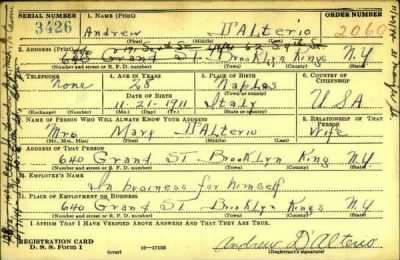 SERIAL NUMBER 1. NAME (Print) ORDER NUMBER
3426 Andrew D'Alterio 2060
(First) (Middle) (Last)
2. ADDRESS (Print)
640 Grand St Brooklyn Kings N.Y
(Number and street or R. F. D. number) (Town) (County) (State)
3. TELEPHONE 4. AGE IN YEARS 5. PLACE OF BIRTH 6. COUNTRY OF CITIZENSHIP
None 28 Naples
DATE OF BIRTH
11-21-1911 Italy USA
(Exchange) (Number) (Mo.) (Day) (Yr.) (State or country)
7. NAME OF PERSON WHO WILL ALWAYS KNOW YOUR ADDRESS 8. RELATIONSHIP OF THAT PERSON
Mrs Mary D'Alterio Wife
(Mr., Mrs., Miss) (First) (Middle) (Last)
9. ADDRESS OF THAT PERSON
640 Grand St Brooklyn King N.Y
(Number and street or R. F. D. number) (Town) (County) (State)
10. EMPLOYER'S NAME
In business for himself
11. PLACE OF EMPLOYMENT OR BUSINESS
640 Grand St Brooklyn Kings N.Y
(Number and street or R. F. D. number) (Town) (County) (State)
I AFFIRM THAT I HAVE VERIFIED ABOVE ANSWERS AND THAT THEY ARE TRUE.
REGISTRATION CARD
D. S. S. Form 1 (over) Andrew D'Alterio
(Registrant's signature)